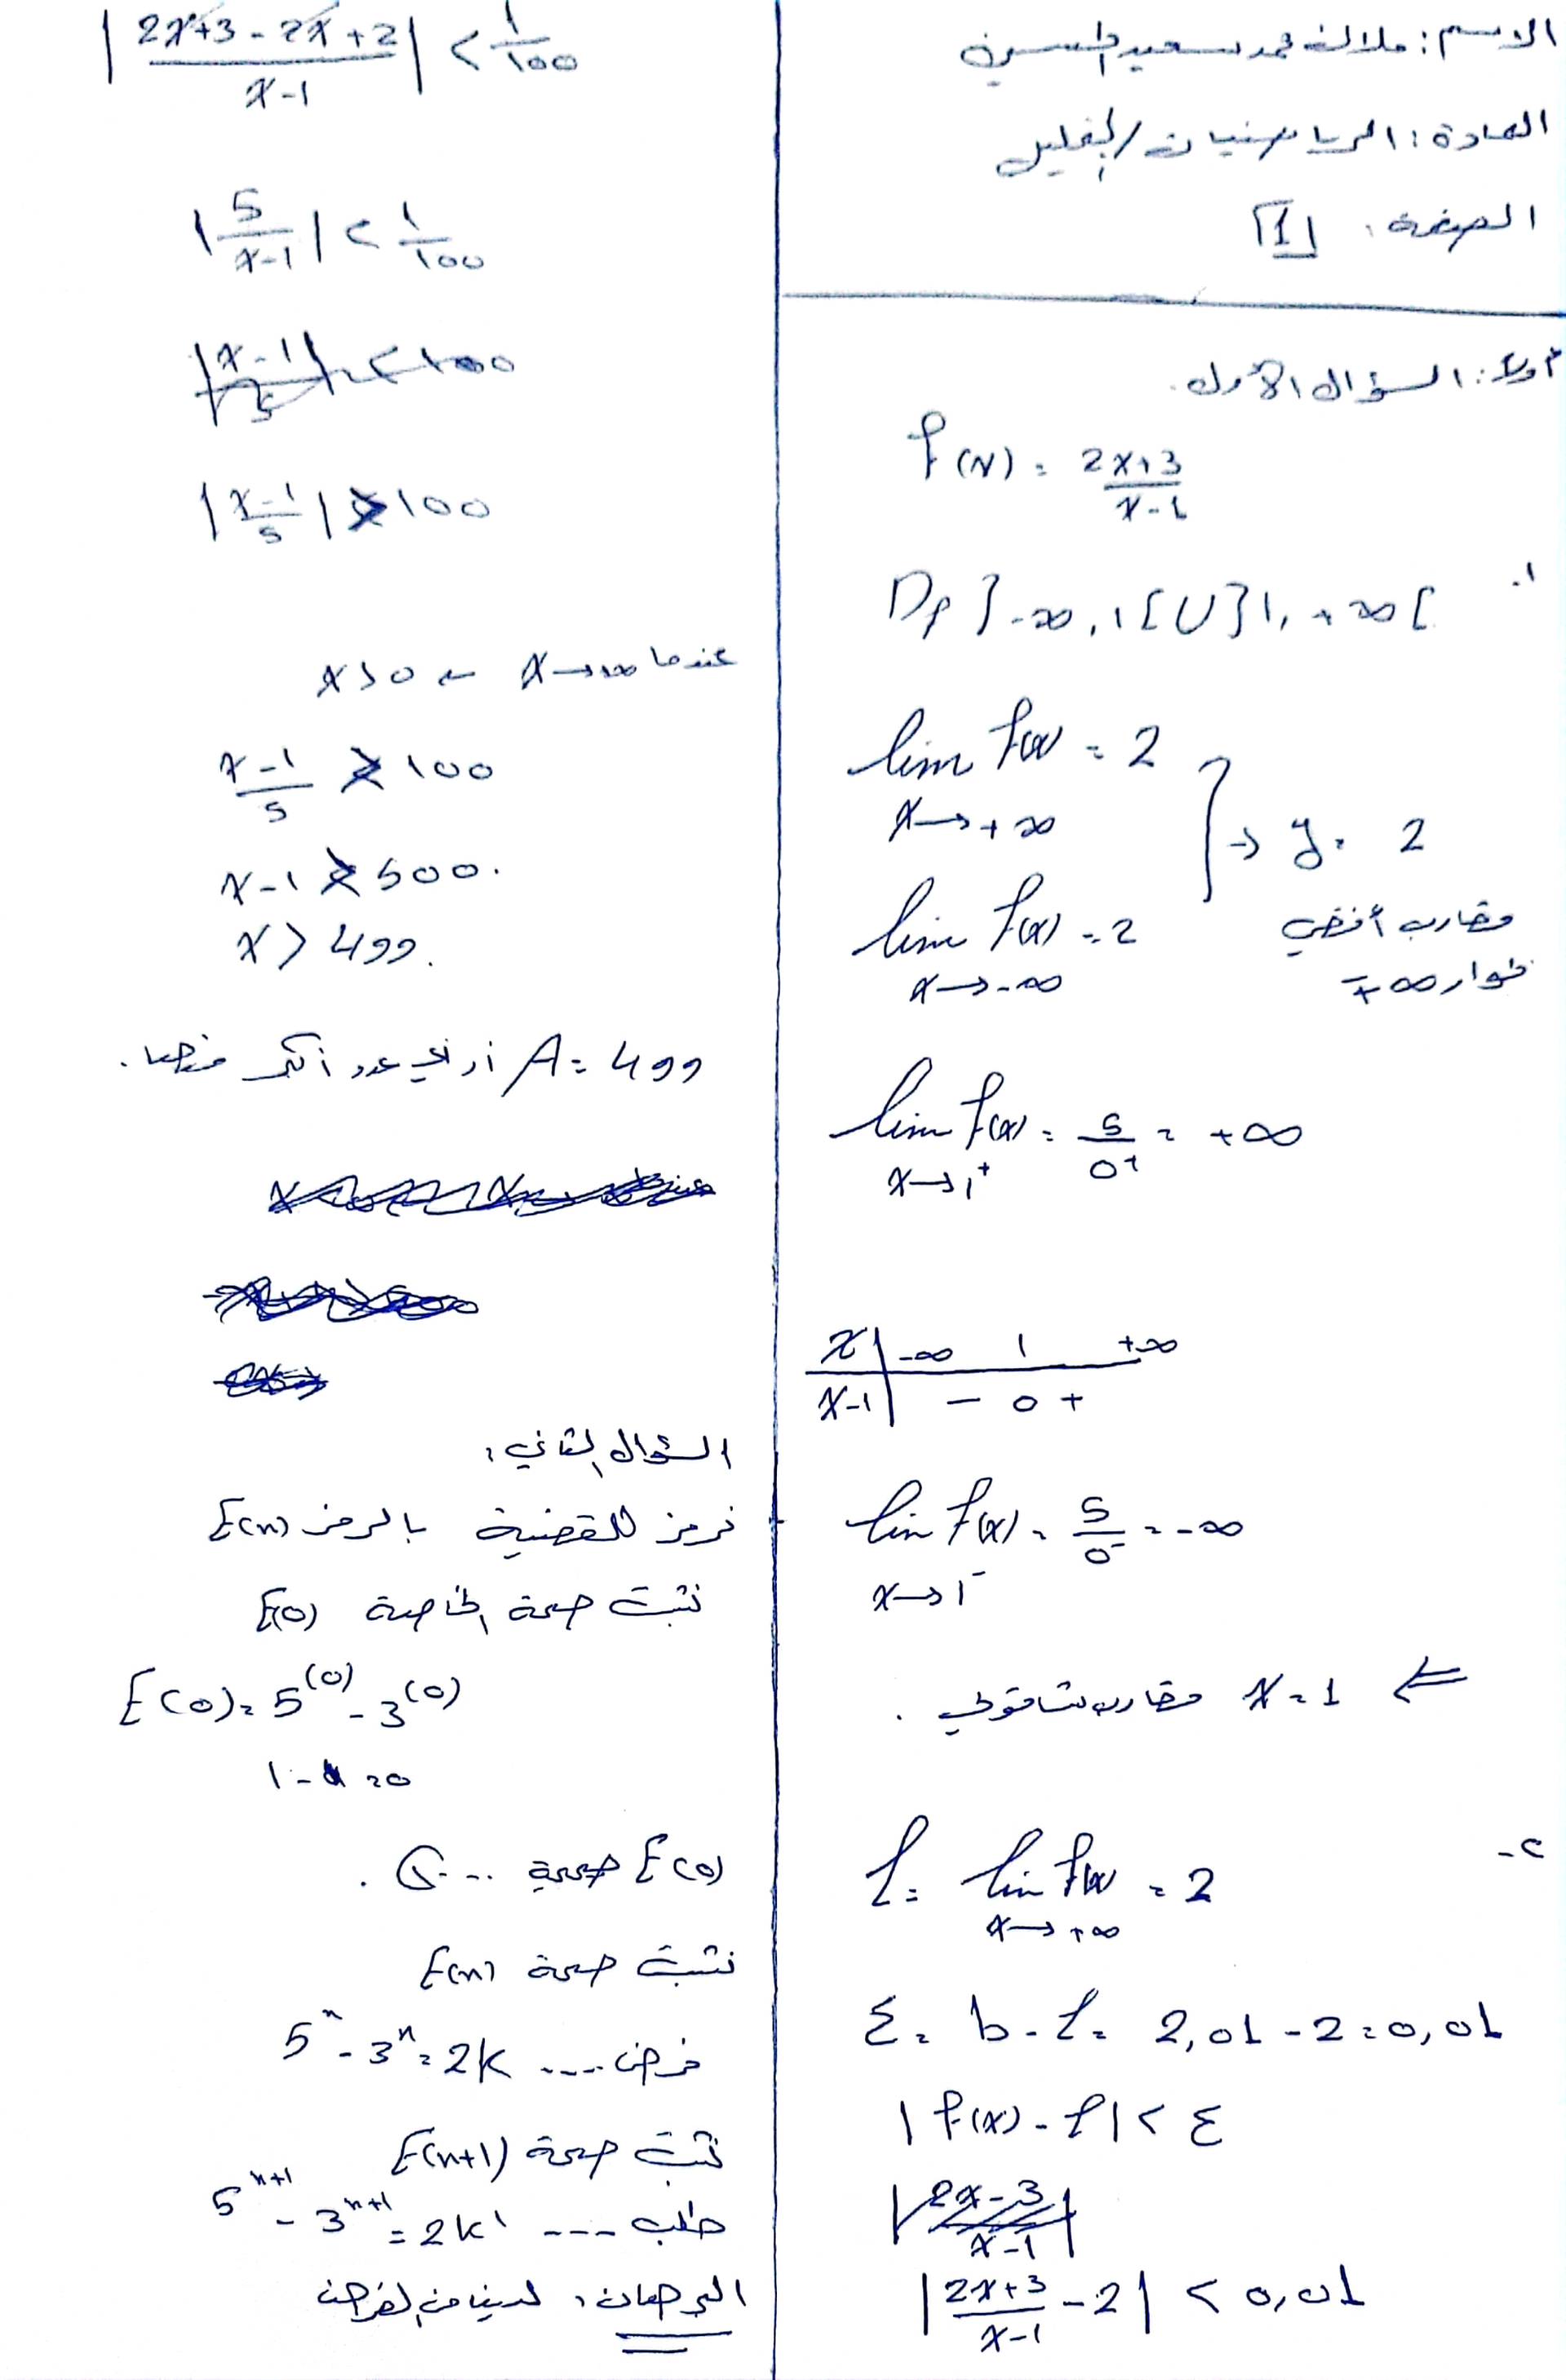 الاسم: ملاك محمد سعيد الحسين
المادة: الرياضيات / التحليل
الصفحة: [1]
أولاً: السؤال الأول.
f(x) = \frac{2x+3}{x-1}
1- Df ]-∞, 1[ U ]1, +∞[
lim f(x) = 2
x→+∞
} → y = 2
lim f(x) = 2
x→-∞
مقارب أفقي
جوار ∓∞
lim f(x) = \frac{5}{0+} = +∞
x→1+
x | -∞ 1 +∞
x-1 | - 0 +
lim f(x) = \frac{5}{0-} = -∞
x→1-
⇐ x = 1 مقارب شاقولي .
2- l = lim f(x) = 2
x→+∞
ε = b - l = 2,01 - 2 = 0,01
|f(x) - l| < ε
|\frac{2x+3}{x-1} - 2| < 0,01
|\frac{2x+3-2x+2}{x-1}| < \frac{1}{100}
|\frac{5}{x-1}| < \frac{1}{100}
|\frac{x-1}{5}| > 100
عندما x→+∞ ← x>0
\frac{x-1}{5} > 100
x-1 > 500.
x > 499.
A = 499 أو أي عدد أكبر منها.
السؤال الثاني:
نرمز للقضية بالرمز E(n)
نثبت صحة الخاصة E(0)
E(0) = 5^(0) - 3^(0)
1 - 1 = 0
E(0) صحيحة ...
نثبت صحة E(n)
فرض .... 5^n - 3^n = 2k
نثبت صحة E(n+1)
طلب --- 5^{n+1} - 3^{n+1} = 2k'
البرهان: لدينا من الفرض